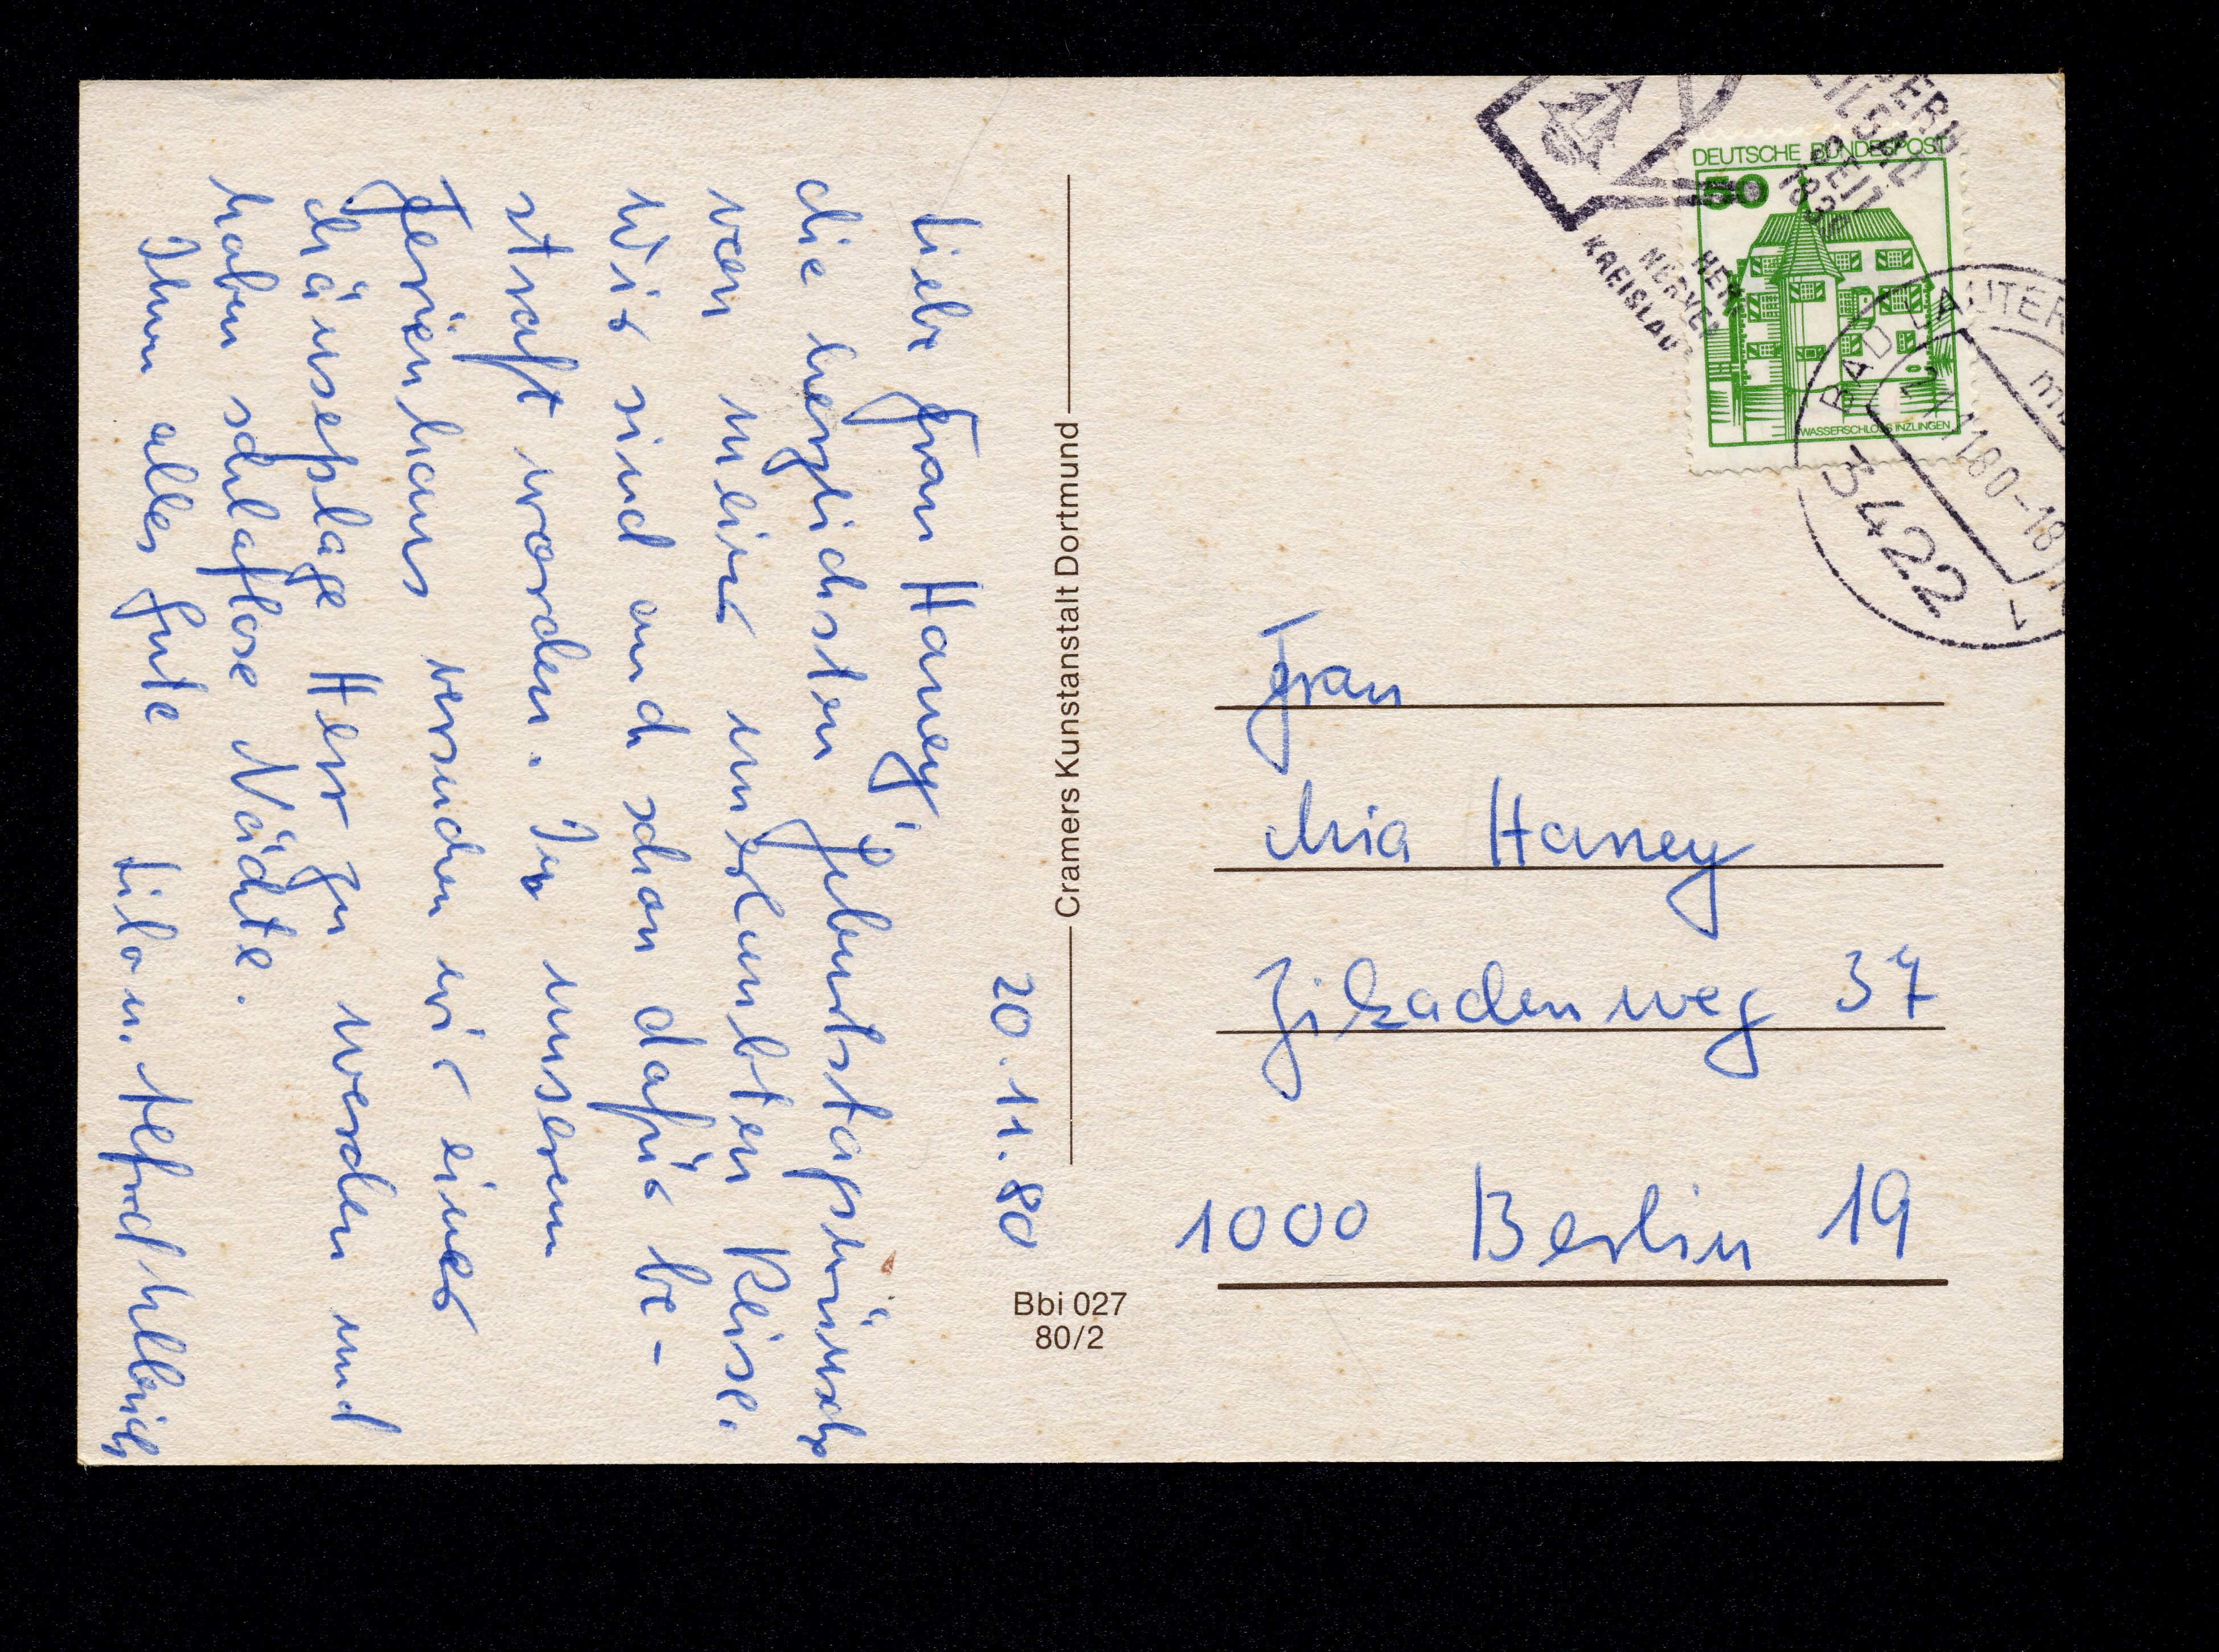 20.11.80
Liebe Frau Haney,
die herzlichsten Geburtstagswünsche
von meiner unerlaubten Reise.
Wir sind auch schon dafür be-
straft worden. In unserem
Ferienhaus versuchen wir einer
Mäuseplage Herr zu werden und
haben schlaflose Nächte.
Ihnen alles Gute
Lilo u.
Cramers Kunstanstalt Dortmund
Bbi 027
80/2
DEUTSCHE BUNDESPOST
50
WASSERSCHLOSS INZLINGEN
SEIT
HERZ
NERVEN
KREISLAUF
BAD LAUTER
11 80-18
3422
Frau
Mia Haney
Zikadenweg 37
1000 Berlin 19